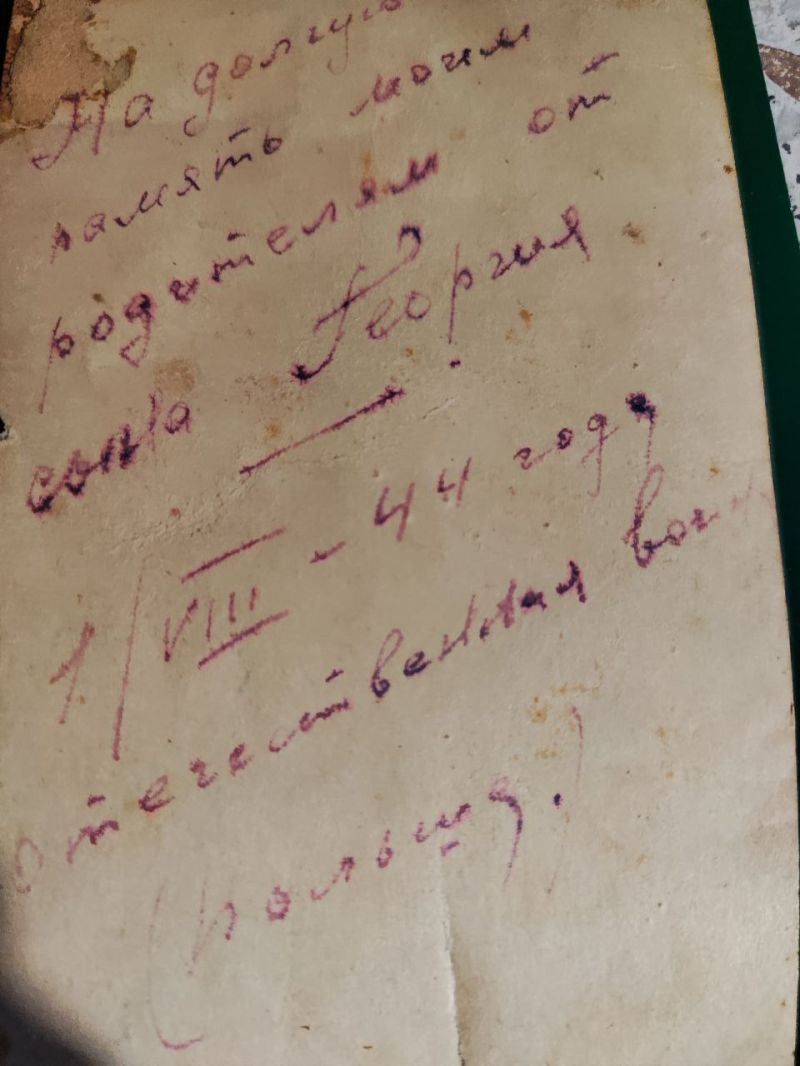 На долгую
память моим
родителям от
сына Георгия.
1/VIII - 44 году
Отечественная война
(польша.)